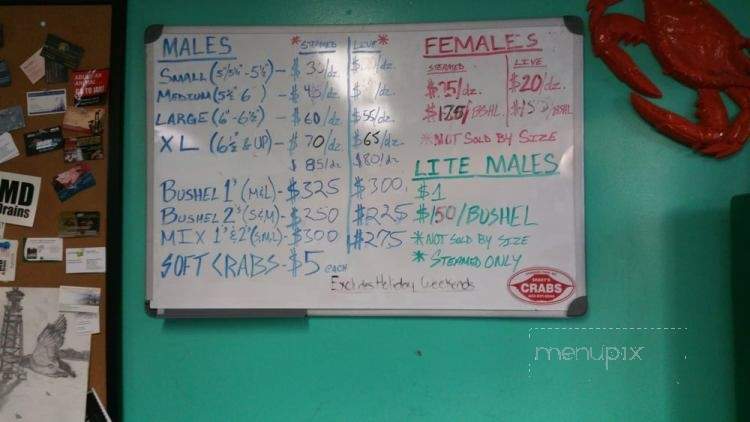 MALES *STEAMED LIVE*
SMALL (5"/5¼" - 5½") - $ 30/dz. $ /dz.
MEDIUM (5½" 6") - $ 45/dz. $ /dz.
LARGE (6" - 6½") - $ 60/dz. $ 55/dz.
XL (6½" & UP) - $ 70/dz. $ 65/dz.
$ 85/dz $80/dz
BUSHEL 1s (M&L) - $325 $300.
BUSHEL 2s (S&M) - $250 $225
MIX 1s & 2s (S,M,L) - $300 $275
SOFT CRABS - $5 EACH
Excludes Holiday Weekends
FEMALES
STEAMED LIVE
$25/dz. $20/dz.
$175/BSHL $150/BSHL
*NOT SOLD BY SIZE
LITE MALES
$1
$150/BUSHEL
*NOT SOLD BY SIZE
* STEAMED ONLY
CRABS
MD
Drains
menupix